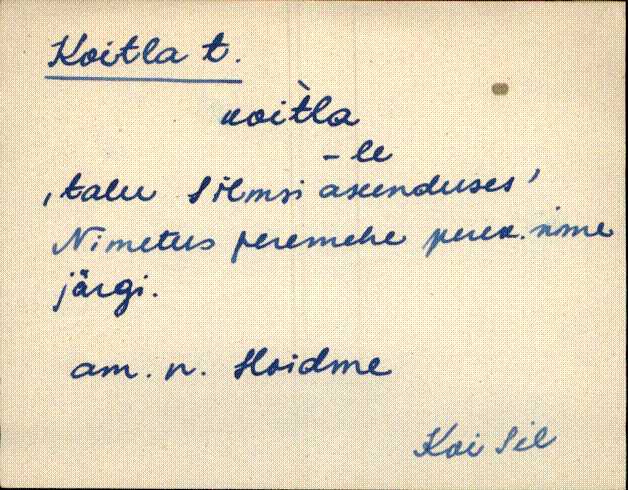 Koitla t.
koìtla
-le
‚talu Silmsi asunduses’
Nimetus peremehe perek. nime
järgi.
am. n. Hoidme
Koi Sil